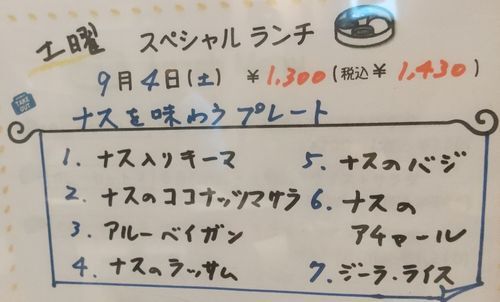 土曜 スペシャル ランチ
9月4日(土) ¥1,300(税込¥1,430)
TAKE OUT
ナスを味わう プレート
1. ナス入りキーマ
2. ナスのココナッツマサラ
3. アルーベイガン
4. ナスのラッサム
5. ナスのバジ
6. ナスの
アチャール
7. ジーラ・ライス